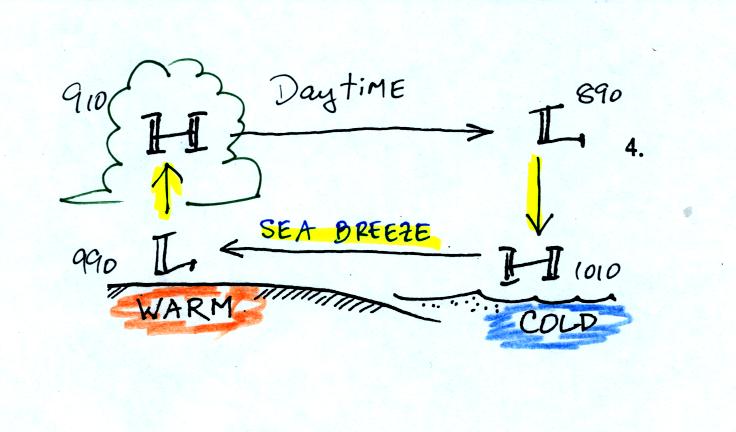 910
Daytime
890
H
L
4.
SEA BREEZE
990
L
H
1010
WARM
COLD